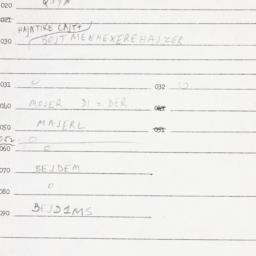 020
HAJNTIKE CAJT+
030 BEJT MENHEXEREHAJZER
031 032
040 MOJER DI = DER 041
050 MAJERL 051
052
060
070 BEJDEM
080
090 BEJD1MS